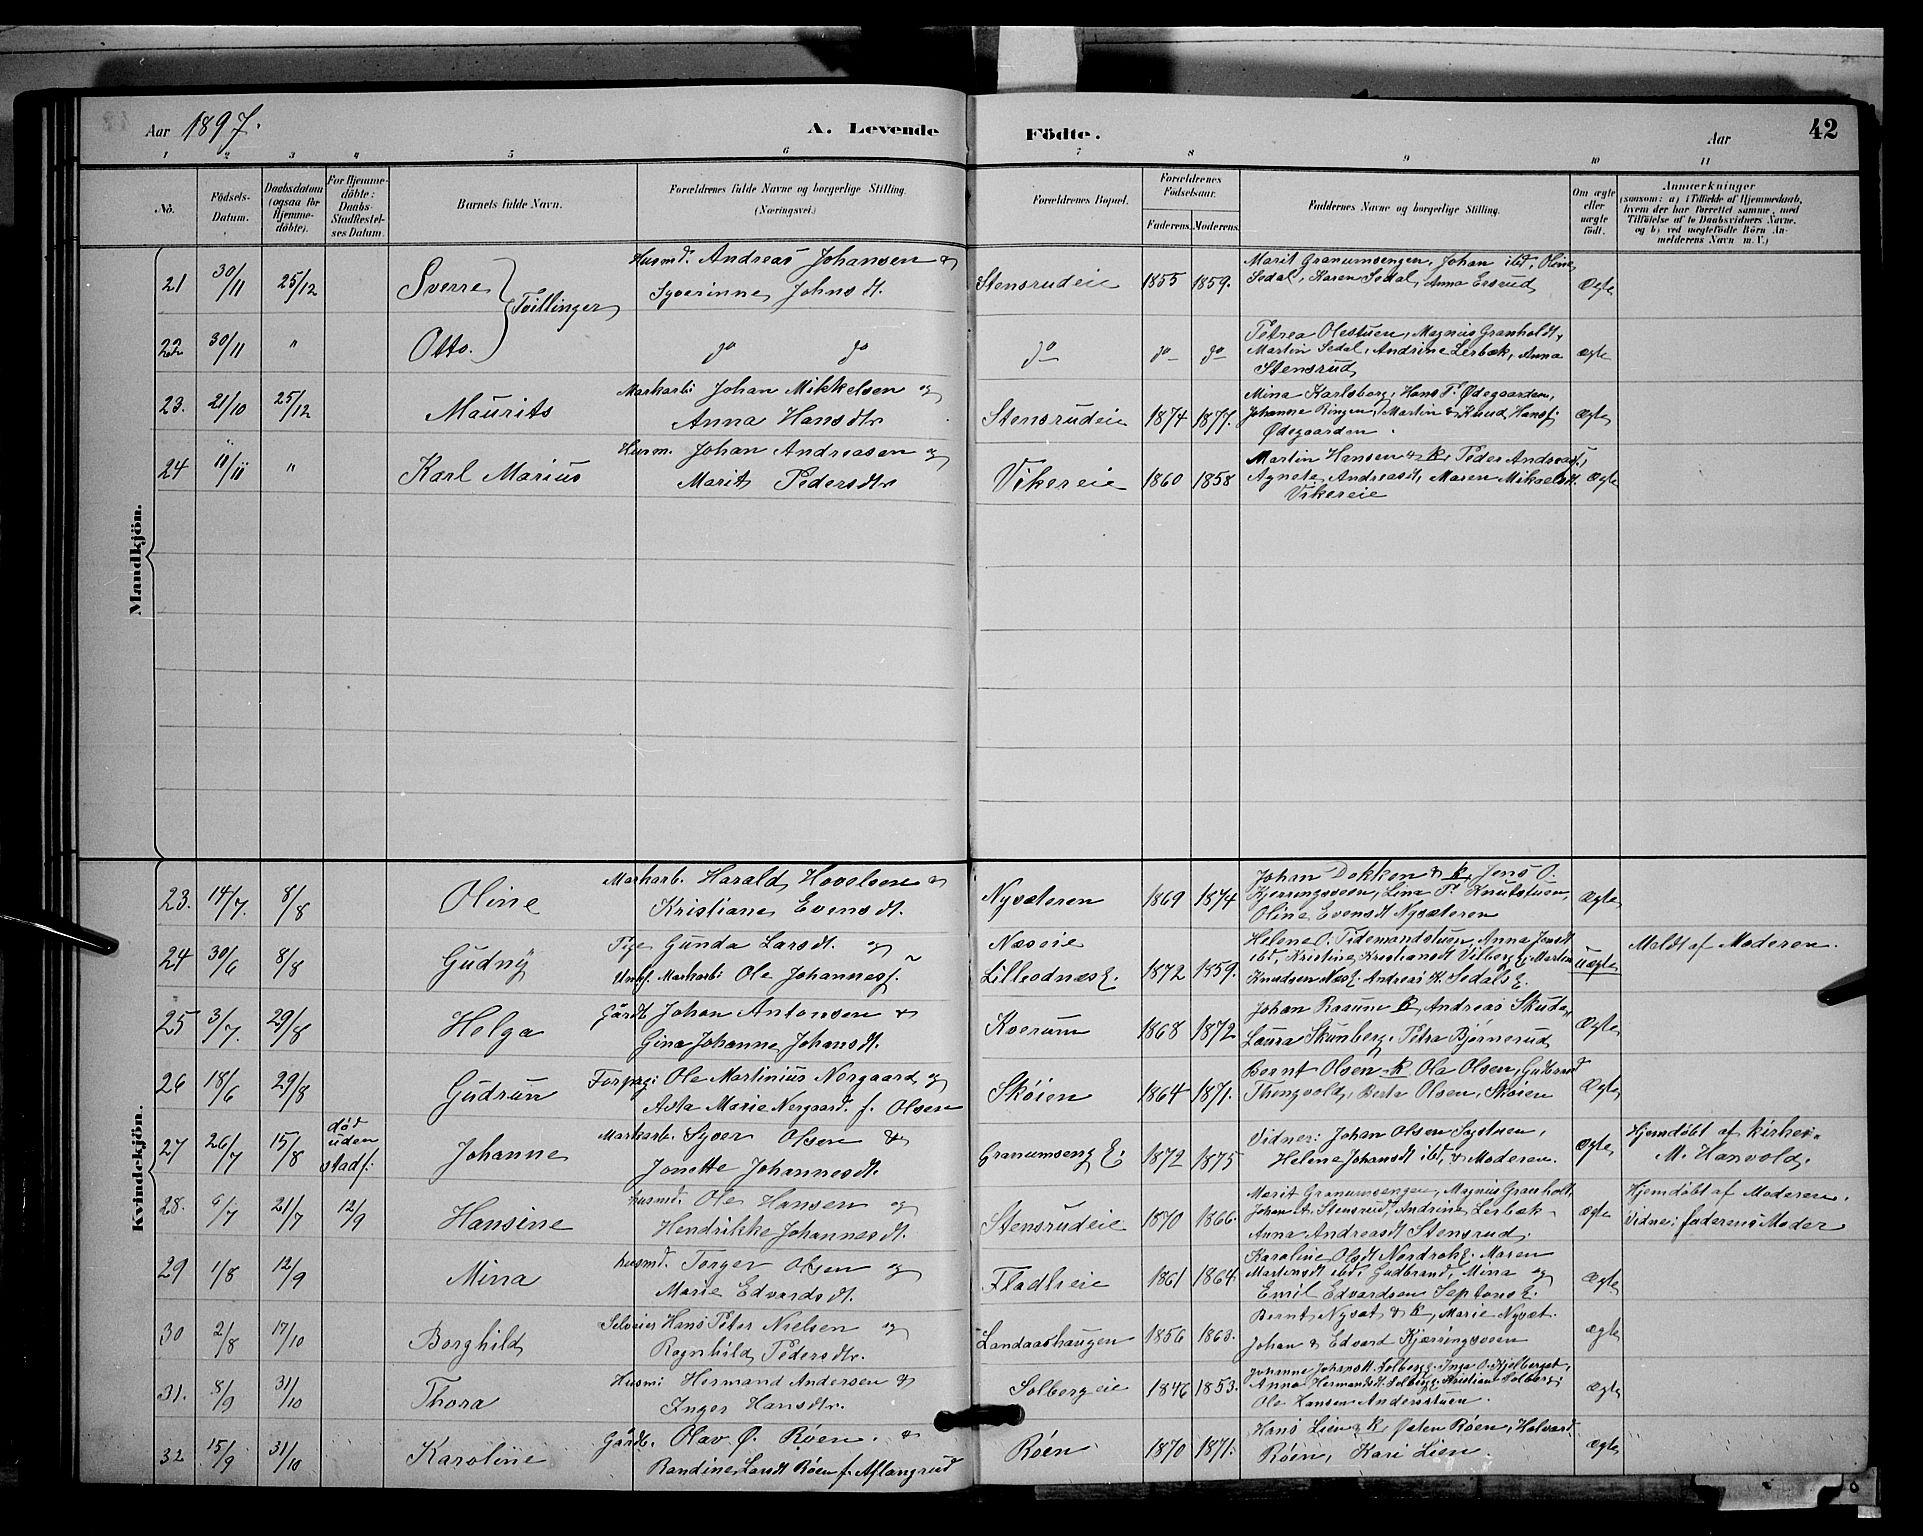 Aar 1897. A. Levende Födte. Aar 42
1 2 3 4 5 6 7 8 9 10 11
No.
Födsels-
Datum.
Daabsdatum
(ogsaa for
Hjemme-
döbte).
For Hjemme-
döbte:
Daabs-
Stadfæstel-
ses Datum.
Barnets fulde Navn.
Forældrenes fulde Navne og borgerlige Stilling.
(Næringsvei.)
Forældrenes Bopæl.
Forældrenes
Födselsaar.
Faderens. Moderens.
Faddernes Navne og borgerlige Stilling.
Om ægte
eller
uægte
födt.
Anmærkninger
(saasom: a) i Tilfælde af Hjemmedaab,
hvem der har forrettet samme, med
Tilföielse af to Daabsvidners Navne,
og b) ved uægtefödte Börn An-
melderens Navn m. V.)
Mandkjön.
21 30/11 25/12 Sverre } Tvillinger Husmd. Andreas Johansen &
Syverinne Johnsdt. Stensrudeie 1855 1859. Marit Granumsengen, Johan ibd, Oline
Sedal, Karen Sedal, Anna Ersrud Ægte
22 30/11 " Otto. do do do do do Petrea Olestuen, Magnus Granholdt,
Martin Sedal, Andrine Lerbæk, Anna
Stensrud ægte
23. 21/10 25/12 Maurits Markarb: Johan Mikkelsen og
Anna Hansdtr Stensrudeie 1874 1877. Mina Karlsborg, Hans P. Ødegaarden,
Johanne Ringen, Martin & Knud Hansf
Ødegaarden. Ægte
24 11/11 " Karl Marius Husm. Johan Andreasen og
Marit Pedersdtr Vikereie 1860 1858 Martin Hansen & K, Peder Andreasf,
Agnete Andreasdt, Maren Mikaelsdt.
Vikereie Ægte
Kvindekjön.
23. 14/7. 8/8 Oline Markarb. Harald Hovelsen &
Kristiane Evensdt. Nysæteren 1869 1874 Johan Dokken & K, Jens O.
Kjerringsveen, Lina P. Knutstuen,
Oline Evensdt Nysæteren Ægte
24 30/6 8/8 Gudny Pige Gunda Larsdt. og
Unkf. Markarb: Ole Johannesf. Næseie
Lilleodnæs E. 1872 1859. Helene O. Tidemandstuen, Anna Jensdt
ibd, Kristine Kristiansdt Vilberg E. Martin
Knudsen Næs E. Andreas K. Sedals E. uægte Meldt af Moderen.
25 3/7. 29/8 Helga Gårdb. Johan Antonsen &
Gina Johanne Johansdt. Koerum 1868 1872 Johan Raaum K Andreas Skuda,
Laura Skumberg, Petra Bjørnerud Ægte
26 18/6 29/8 Gudrun Forpagt: Ole Martinius Norgaard og
Asta Marie Norgaard f. Olsen Skøien 1864 1871. Bernt Olsen K Ola Olsen, Gudbrand
Thingvold, Berta Olsen, Skøien Ægte
27 26/7 15/8 død
uden
stadf: Johanne Markarb. Syver Olsen &
Jonette Johannesdt. Granumseng E. 1872 1875 Vidner: Johan Olsen Systuen,
Helene Johansdt ibd, & Moderen. Ægte Hjemdøbt af Kirkes.
M. Hanvold.
28. 6/7 21/7 12/9 Hansine Husmd. Ole Hansen og
Hendrikke Johannesdt. Stensrudeie 1870 1866. Marit Granumsengen, Magnus Granholt,
Johan A. Stensrud, Andrine Lerbæk
Anna Andreasdt Stensrud. ægte Hjemdøbt af Moderen.
Vidne: faderens Moder
29 1/8 12/9 Mina Husmd. Torger Olsen og
Marie Edvardsdt. Fladtseie 1861 1864. Karoline Olsdt Nordrok E. Maren
Martinsdt ibd, Gudbrand, Mina og
Emil Edvardsen Septons E. ægte
30 2/8 17/10 Borghild Selveier Hans Peter Nielsen og
Ragnhild Pedersdtr. Landaashaugen 1856 1863. Bernt Nysæt & K, Marie Nysæt.
Johan & Edvard Kjærringsveen ægte
31. 8/9 31/10 Thora Husm: Hermand Andersen &
Inger Hansdtr. Solbergeie 1846 1853. Johanne Johansdt. Solberg E. Inga O. Kjelberget,
Anna Hermandsdt. Solberg E. Kristian Solberg,
Ole Hansen Andersstuen. Ægte
32 15/9 31/10 Karoline Gårdb. Olav Ø. Røen &
Randine Landt Røen f. Aslangrud Røen 1870 1871. Hans Lien & K, Østen Røen, Halvard
Røen, Kari Lien. Ægte